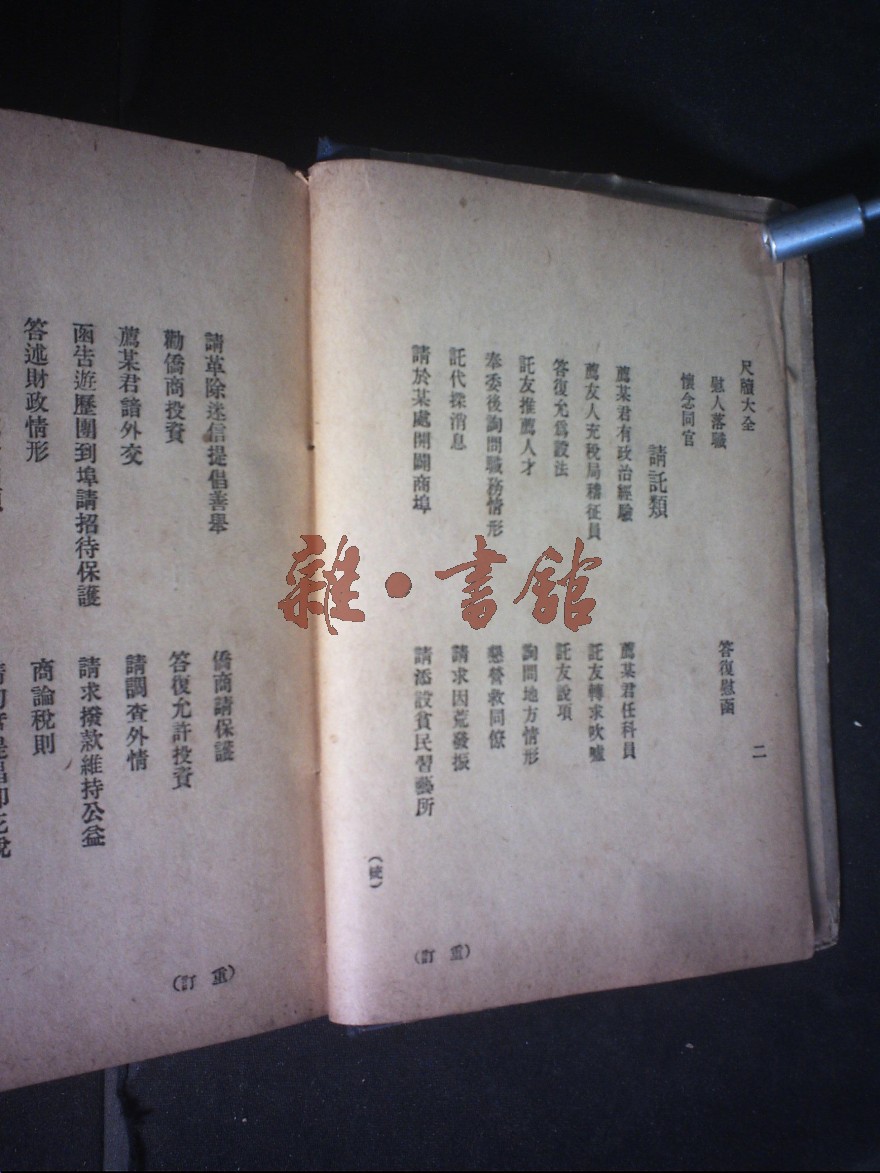 尺牘大全
二
慰人落職
答復慰函
懷念同官
請託類
薦某君有政治經驗
薦某君任科員
薦友人充稅局稽征員
託友轉求吹噓
答復允爲設法
託友說項
託友推薦人才
詢問地方情形
奉委後詢問職務情形
懇營救同僚
託代探消息
請求因荒發振
請於某處開闢商埠
請添設貧民習藝所
(重訂)
請革除迷信提倡善舉
僑商請保護
勸僑商投資
答復允許投資
薦某君諳外交
請調查外情
函告遊歷團到埠請招待保護
請求撥款維持公益
答述財政情形
商論稅則
(重訂)
雜·書館